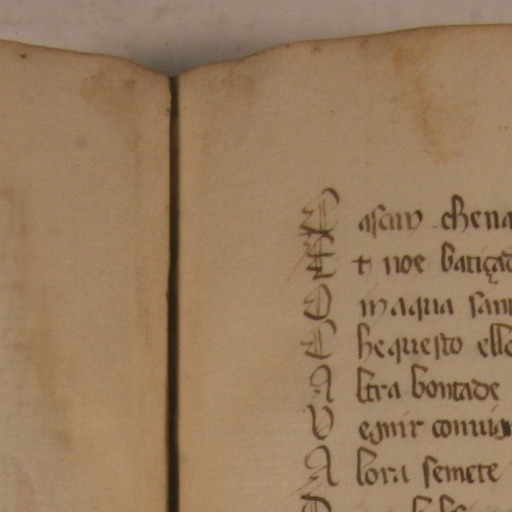 C ascun che na
E t noe batiçad
O in aqua sant
C he questo elle
A ltra bontade
V egnir conuig
A lora semete